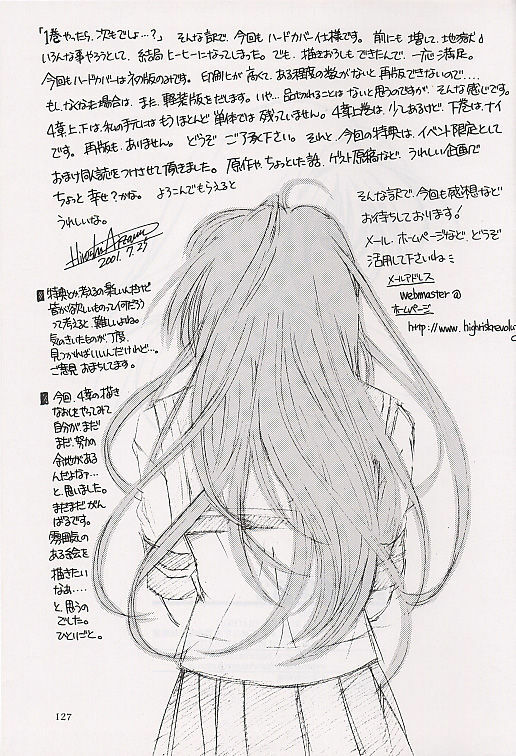 「1巻やったら、次もでしょ…?」 そんな訳で、今回もハードカバー仕様です。前にも増して、地獄よ
いろんな事やろうとして、結局ヒーヒーになってしまった。でも、描きおろしもできたんで、一応満足。
今回もハードカバーは初版のみです。印刷代が高くて、ある程度の数がないと再版できないので‥‥
もし、なくなった場合は、また、軽装版をだします。いや…品切れることはないと思うのですが、そんな感じです。
4章上、下は、私の手元にはもうほとんど単体では残っていません。4章上巻は、少しあるけど、下巻は、ナイ
です。再版も、ありません。どうぞ ご了承下さい。それと、今回の特典は、イベント限定として
おまけ同人誌をつけさせて頂きました。原作や、ちょっとした話、ゲスト原稿など、うれしい企画で
ちょっと 幸せ?かな。 よろこんでもらえると
うれしいな。
2001. 7. 25
そんな訳で、今回も感想など
お待ちしております!
メール、ホームページなど、どうぞ
活用して下さいね
メールアドレス
webmaster@
ホームページ
http://www.highriskrevolu
特典とか考えるの楽しいんだけど
皆が欲しいものって何だろう
って考えると、難しいよね。
気のきいたものが丁度、
見つかればいいんだけれど…。
ご意見、おまちしてます。
今回、4章の描き
なおしをやってみて
自分が、まだ
まだ、努力の
余地がある
んだよなァ…
と、思いました。
まだまだがん
ばるです。
雰囲気の
ある絵を
描きたい
なぁ‥‥
と、思うの
でした。
ひとりごと。
127